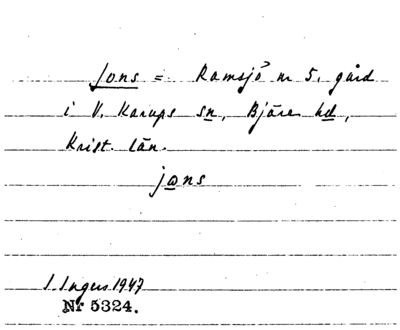 Jons = Ramsjö nr 5, gård
i V. Karups sn, Bjäre hd,
Krist. län.
jɷns
I. Ingers 1947
Nr 5324.